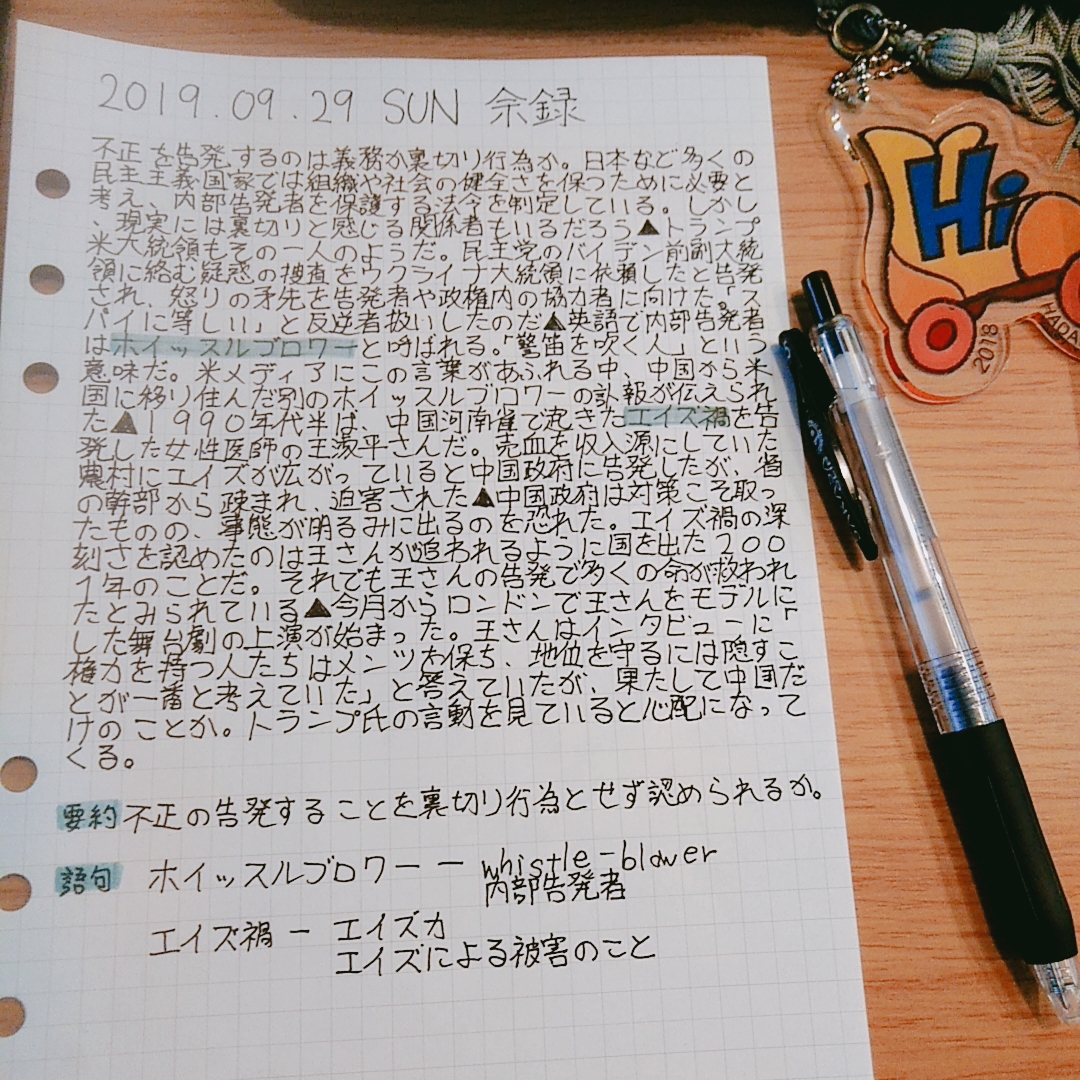 2019.09.29 SUN 余録
不正を告発するのは義務か裏切り行為か。日本など多くの
民主主義国家では組織や社会の健全さを保つために必要と
考え、内部告発者を保護する法令を制定している。しかし
、現実には裏切りと感じる関係者もいるだろう▲トランプ
米大統領もその一人のようだ。民主党のバイデン前副大統
領に絡む疑惑の捜査をウクライナ大統領に依頼したと告発
され、怒りの矛先を告発者や政権内の協力者に向けた。「ス
パイに等しい」と反逆者扱いしたのだ▲英語で内部告発者
はホイッスルブロワーと呼ばれる。「警笛を吹く人」という
意味だ。米メディアにこの言葉があふれる中、中国から米
国に移り住んだ別のホイッスルブロワーの訃報が伝えられ
た▲1990年代半ば、中国河南省で起きたエイズ禍を告
発した女性医師の王淑平さんだ。売血を収入源にしていた
農村にエイズが広がっていると中国政府に告発したが、省
の幹部から疎まれ、迫害された▲中国政府は対策こそ取っ
たものの、事態が明るみに出るのを恐れた。エイズ禍の深
刻さを認めたのは王さんが追われるように国を出た200
1年のことだ。それでも王さんの告発で多くの命が救われ
たとみられている▲今月からロンドンで王さんをモデルに
した舞台劇の上演が始まった。王さんはインタビューに「
権力を持つ人たちはメンツを保ち、地位を守るには隠すこ
とが一番と考えていた」と答えていたが、果たして中国だ
けのことか。トランプ氏の言動を見ていると心配になって
くる。
要約 不正の告発することを裏切り行為とせず認められるか。
語句 ホイッスルブロワー ー whistle-blower
内部告発者
エイズ禍 ー エイズカ
エイズによる被害のこと
Hi
2018